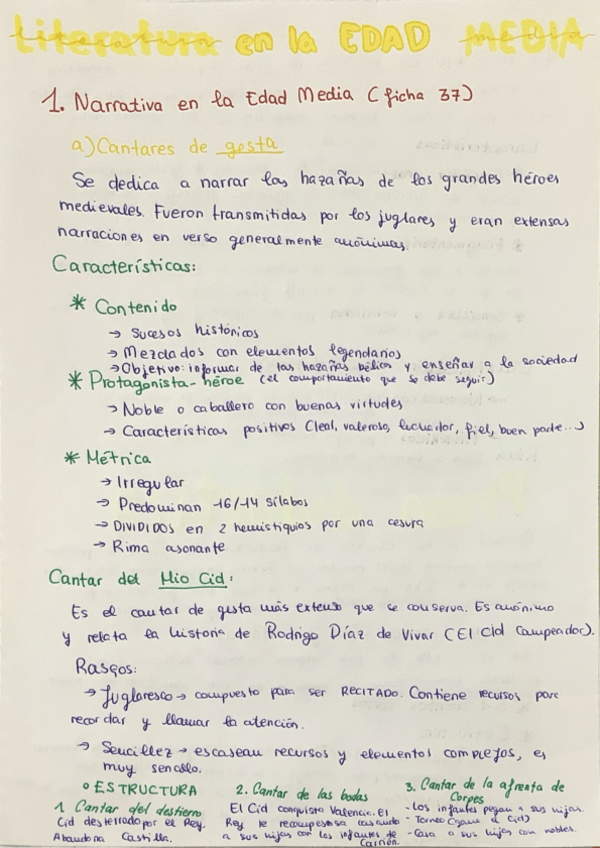 Literatura en la EDAD MEDIA
1. Narrativa en la Edad Media (ficha 37)
a) Cantares de gesta
Se dedica a narrar las hazañas de los grandes héroes
medievales. Fueron transmitidas por los juglares y eran extensas
narraciones en verso generalmente anónimas.
Características:
* Contenido
→ Sucesos históricos
→ Mezclados con elementos legendarios
→ Objetivo: informar de las hazañas bélicas y enseñar a la sociedad
* Protagonista - héroe (el comportamiento que se debe seguir)
→ Noble o caballero con buenas virtudes
→ Características positivas (leal, valeroso, luchador, fiel, buen padre...)
* Métrica
→ Irregular
→ Predominan -16/14 sílabas
→ DIVIDIDOS en 2 hemistiquios por una cesura
→ Rima asonante
Cantar del Mio Cid:
Es el cantar de gesta más extenso que se conserva. Es anónimo
y relata la historia de Rodrigo Díaz de Vivar (El Cid Campeador).
Rasgos:
→ Juglaresco → compuesto para ser RECITADO. Contiene recursos para
recordar y llamar la atención.
→ Sencillez → escasean recursos y elementos complejos, es
muy sencillo.
° ESTRUCTURA
1. Cantar del destierro
Cid desterrado por el Rey.
Abandona Castilla.
2. Cantar de las bodas
El Cid conquista Valencia. El
Rey le recompensa casando
a sus hijas con los infantes de
Carrión.
3. Cantar de la afrenta de
Corpes
- Los infantes pegan a sus hijas.
- Torneo (gana el Cid)
- Casa a sus hijas con nobles.